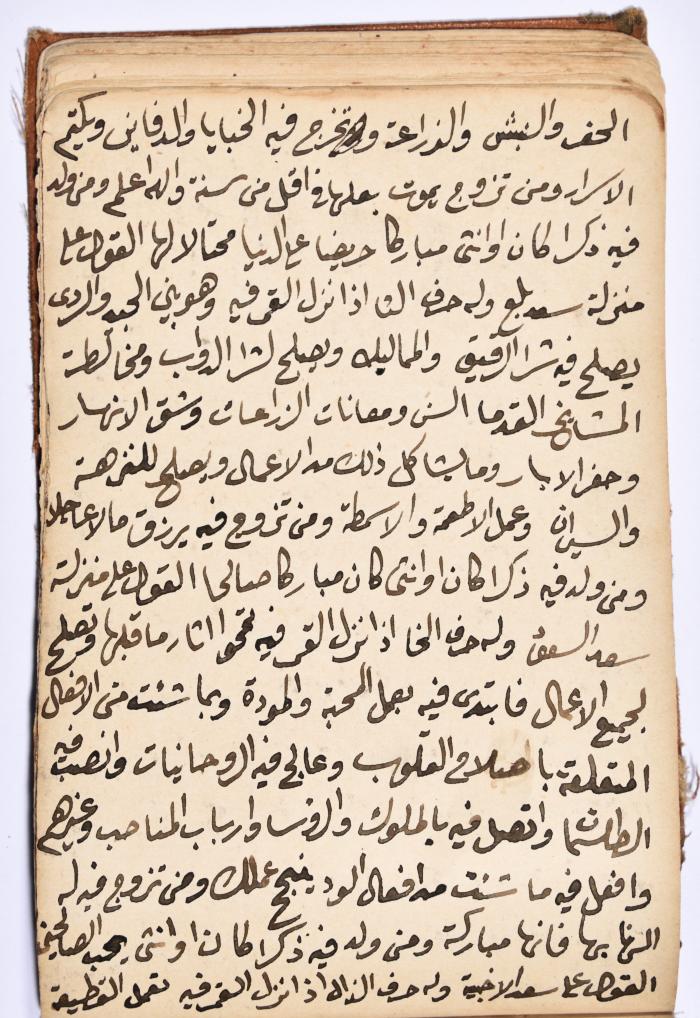 الحفر والنبش والزراعة وتخرج فيه الخبايا والدفاين ويكتم
الاسرار ومن تزوج يموت بعلها في اقل من سنة والله اعلم ومن ولد
فيه ذكرا كان او انثى مباركا حريصا على الدنيا محتالا لها القول على
منزلة سعد بلع وله حرف الثا اذا نزل القمر فيه وهو بني الجيد والردى
يصلح فيه شرا الرقيق والمماليك ويصلح لشرا الدواب ومخالطة
المشايخ القدما السن ومعانات الزراعات وشق الانهار
وحفر الابار وما يشاكل ذلك من الاعمال ويصلح للنزهة
والسيران وعمل الاطعمة والاسمطة ومن تزوج فيه يرزق مالا عاجلا
ومن ولد فيه ذكرا كان او انثى كان مباركا صالحا القول على منزلة
سعد السعود وله حرف الخا اذا نزل القمر فيه تمحوا اثار ما قبلها وتصلح
لجميع الاعمال فابتدى فيه بعمل المحبة والمودة وبما شئت من الافعال
المتعلقة باصلاح القلوب وعالج فيه الروحانيات وانصب فيه
الطلسمات واتصل فيه بالملوك والروسا وارباب المناصب وغيرهم
وافعل فيه ما شئت من افعال الود ينجح عملك ومن تزوج فيه له
الهنا بها فانها مباركة ومن ولد فيه ذكرا كان او انثى يحب الصالحين
القول على سعد الاخبية وله حرف الذال اذا نزل القمر فيه تعمل القطيعة